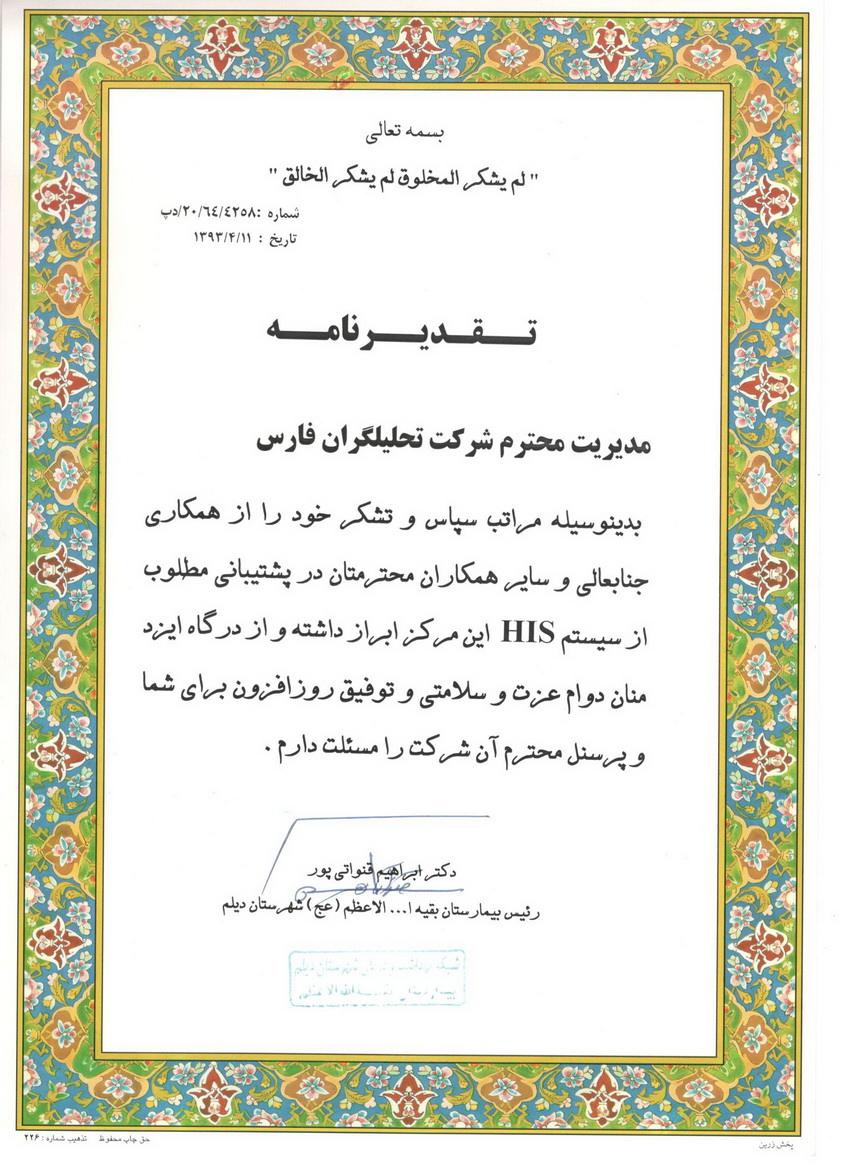 بسمه تعالی
" لم یشکر المخلوق لم یشکر الخالق "
شماره :۲۰/٦٤/٤٢٥٨/دپ
تاریخ : ۱۳۹۳/۴/۱۱
تـقـدیـرنامـه
مدیریت محترم شرکت تحلیلگران فارس
بدینوسیله مراتب سپاس و تشکر خود را از همکاری
جنابعالی و سایر همکاران محترمتان در پشتیبانی مطلوب
از سیستم HIS این مرکز ابراز داشته و از درگاه ایزد
منان دوام عزت و سلامتی و توفیق روزافزون برای شما
و پرسنل محترم آن شرکت را مسئلت دارم .
دکتر ابراهیم قنواتی پور
رئیس بیمارستان بقیه ا... الاعظم (عج) شهرستان دیلم
شبکه بهداشت و درمان شهرستان دیلم
حق چاپ محفوظ تذهیب شماره : ۲۲۶
پخش زرین